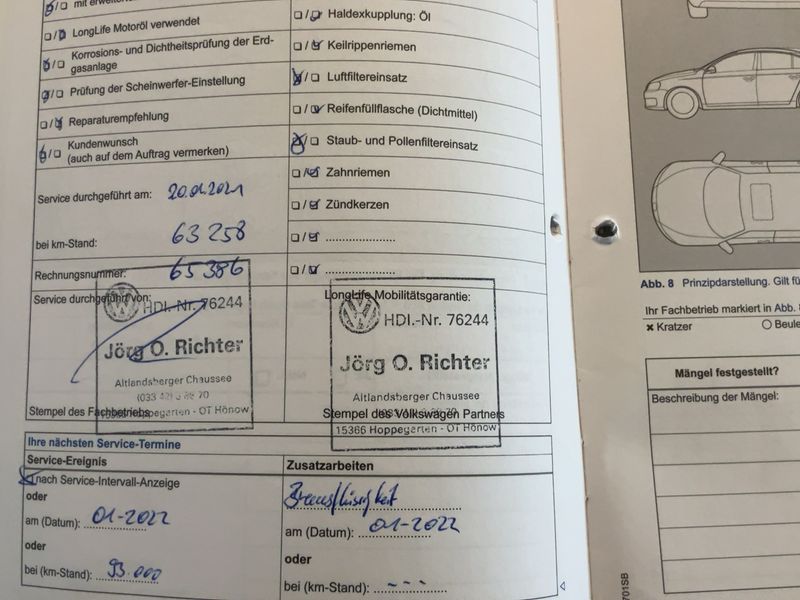 mit
LongLife Motoröl verwendet
Korrosions- und Dichtheitsprüfung der Erd-
gasanlage
Prüfung der Scheinwerfer-Einstellung
Reparaturempfehlung
Kundenwunsch
(auch auf dem Auftrag vermerken)
Service durchgeführt am: 20.01.2021
bei km-Stand: 63 258
Rechnungsnummer: 65386
Service durchgeführt von:
HDl.-Nr. 76244
Jörg O. Richter
Altlandsberger Chaussee
15366 Hoppegarten - OT Hönow
Stempel des Fachbetriebs
Haldexkupplung: Öl
Keilrippenriemen
Luftfiltereinsatz
Reifenfüllflasche (Dichtmittel)
Staub- und Pollenfiltereinsatz
Zahnriemen
Zündkerzen
LongLife Mobilitätsgarantie:
HDl.-Nr. 76244
Jörg O. Richter
Altlandsberger Chaussee
Stempel des Volkswagen Partners
15366 Hoppegarten - OT Hönow
Ihre nächsten Service-Termine
Service-Ereignis
nach Service-Intervall-Anzeige
oder
am (Datum): 01-2022
oder
bei (km-Stand): 93.000
Zusatzarbeiten
Bremsflüssigkeit
am (Datum): 01-2022
oder
bei (km-Stand): ---
Abb. 8 Prinzipdarstellung. Gilt
Ihr Fachbetrieb markiert in Abb.
Kratzer
Mängel festgestellt?
Beschreibung der Mängel:
701SB